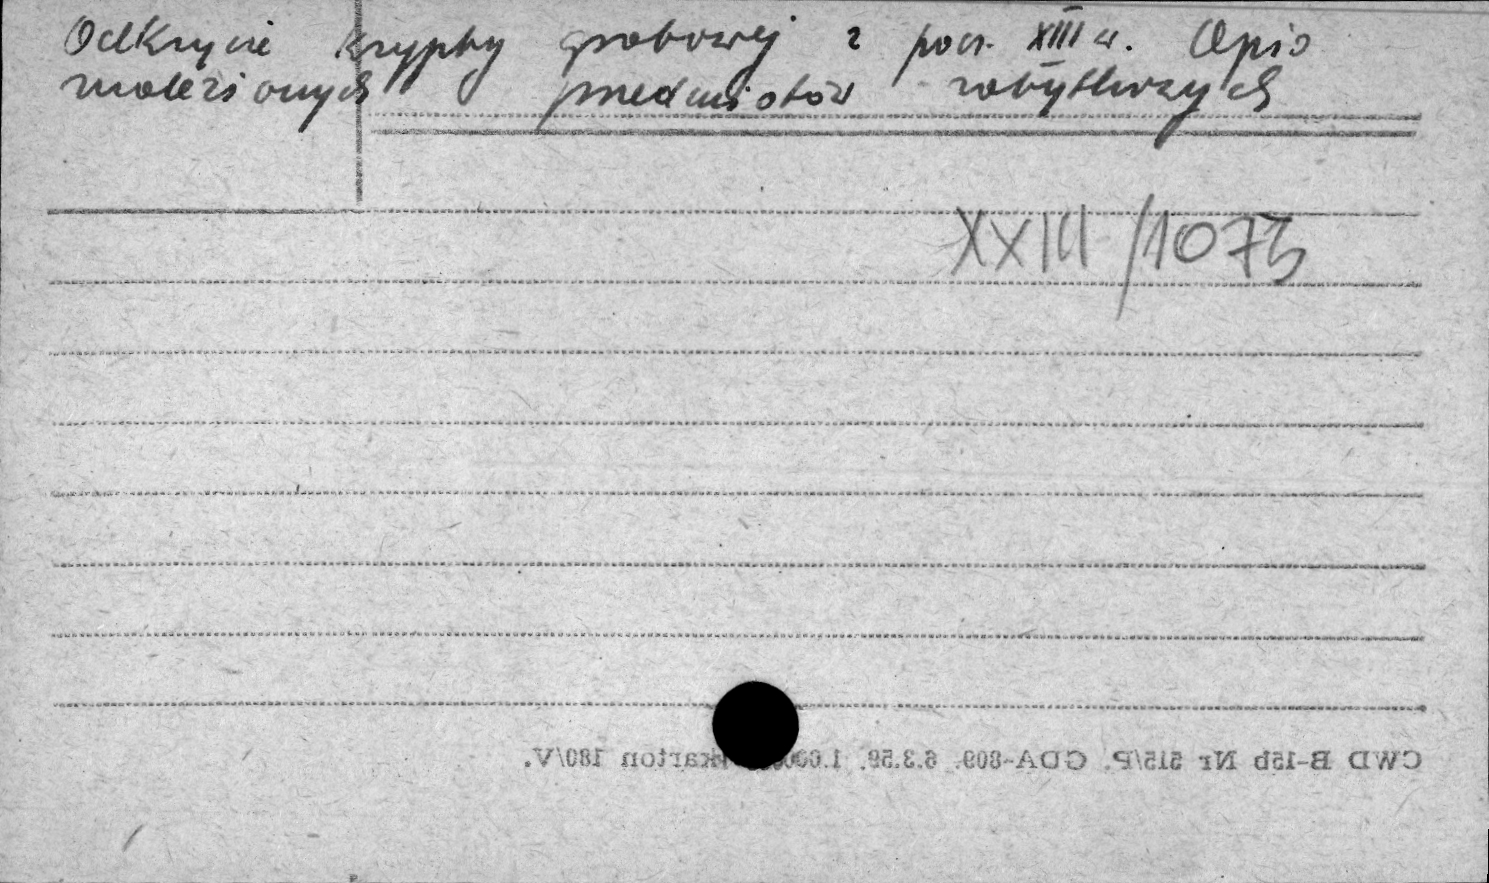 Odkrycie krypty grobowej z pocz. XIII w. Opis
znalezionych przedmiotów zabytkowych
XXIII/1073
CWD B-15b Nr 515/P. CDA-809. 6.3.59. 1.000000 karton 180/V.